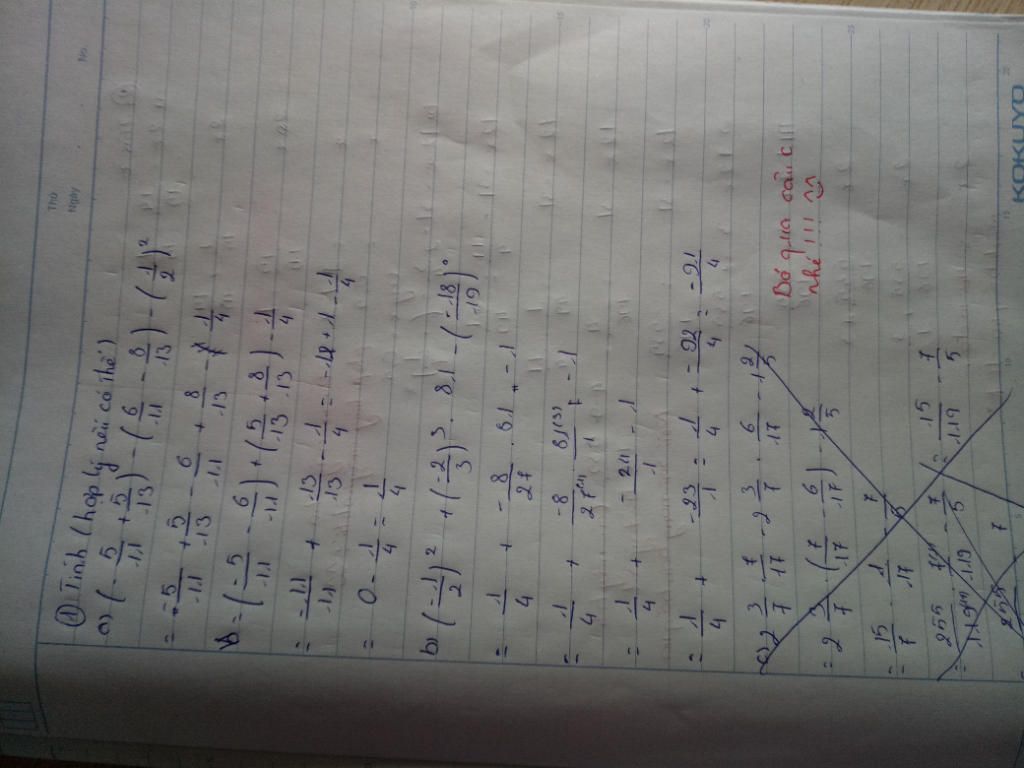 Thứ
Ngày No.
① Tính (hợp lý nếu có thể)
a) (-5/11 + 5/13) - (6/11 - 8/13) - (1/2)²
= -5/11 + 5/13 - 6/11 + 8/13 - 1/4
= (-5/11 - 6/11) + (5/13 + 8/13) - 1/4
= -11/11 + 13/13 - 1/4 = -1 + 1 - 1/4
= 0 - 1/4 = -1/4
b) (-1/2)² + (-2/3)³ . 81 - (-18/19)⁰
= 1/4 + -8/27 . 81 - 1
= 1/4 + -8/27⁽¹⁾ . 81⁽³⁾/1 - 1
= 1/4 + -24/1 - 1
= 1/4 + -23/1 = 1/4 + -92/4 = -91/4
c) 2 3/7 . 7/17 - 2 3/7 . 6/17 - 1 2/5
= 2 3/7 . (7/17 - 6/17) - 1 2/5
= 15/7 . 1/17 - 7/5
Bỏ qua câu c
nhé!!!
KOKUYO